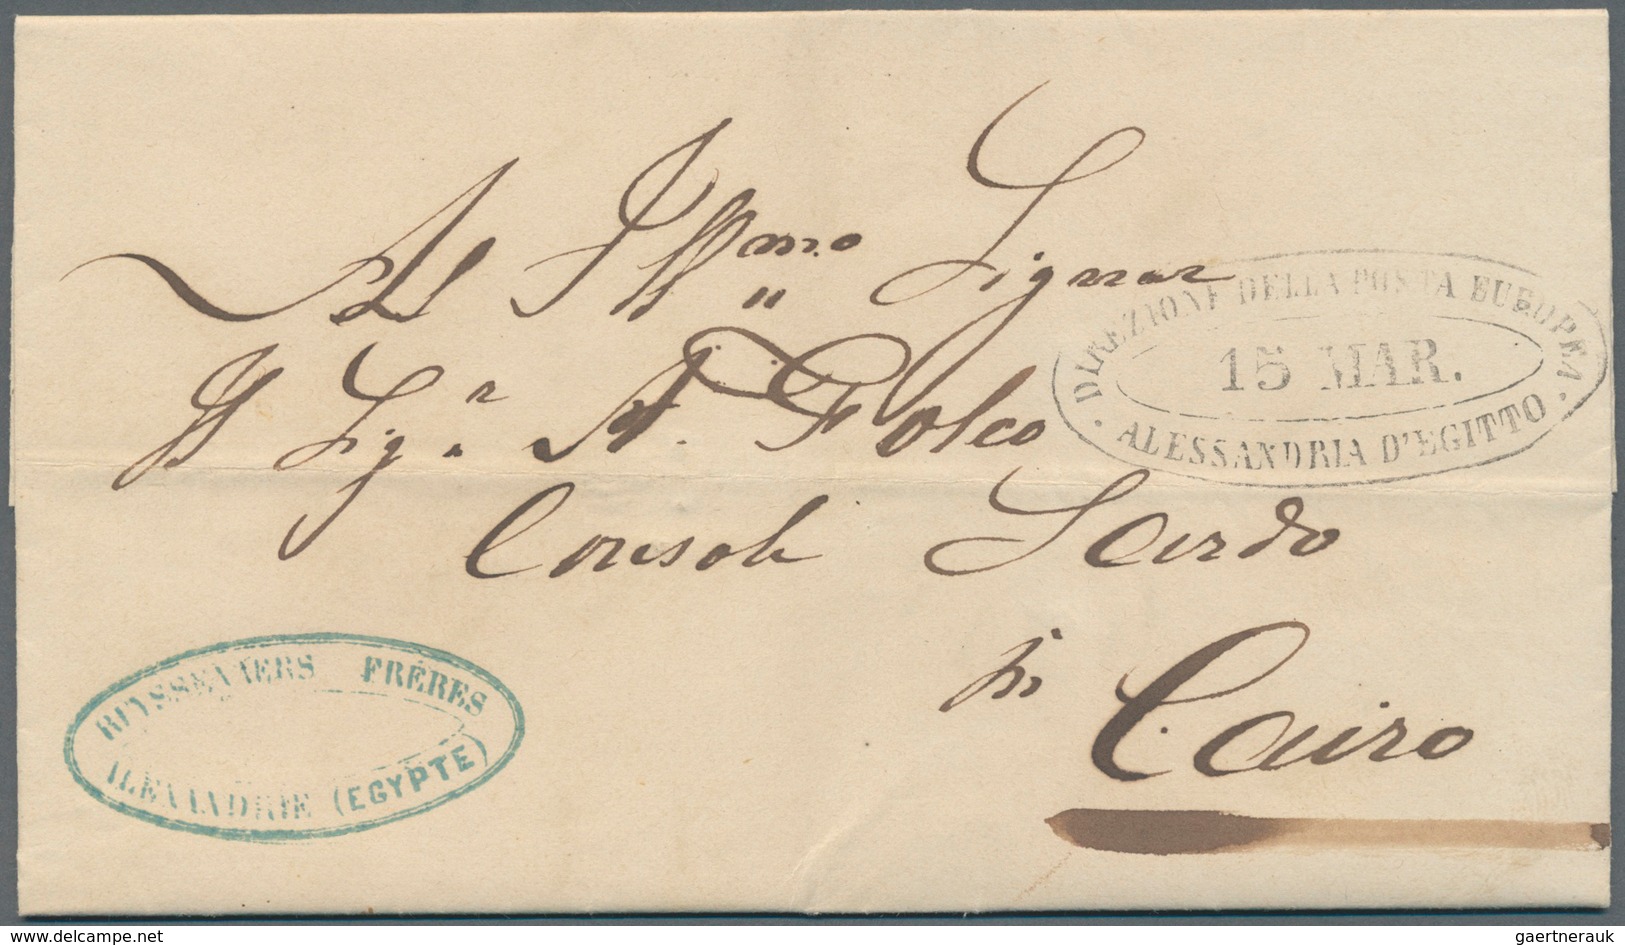 Al Ill.mo Signor
Il Sig.r A. Folco
Console Sardo
in Cairo
DIREZIONE DELLA POSTA EUROPEA
15 MAR.
ALESSANDRIA D'EGITTO
RUYSSENAERS FRÈRES
ALEXANDRIE (EGYPTE)
gaertnerauk